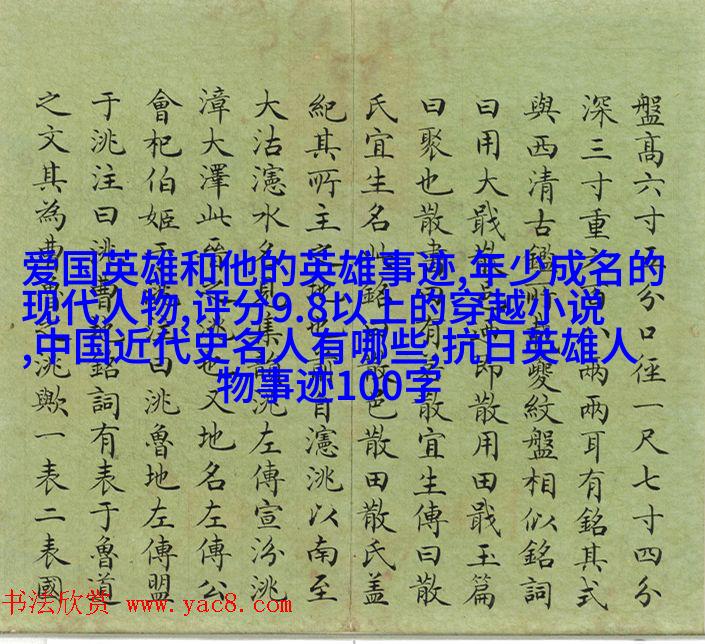 盤高六寸分口俓一尺七寸四分
深三寸重兩兩耳有銘其式
與西清古鑑所夔紋盤相似銘詞
曰用大戥即散用田戥玉篇
曰聚也散有散宜生傳曰散
氏宜生名此銘散邑散田散氏盖
紀其所主自瀗洮以南至
大沽瀗水名見集韻洮左傳宣汾洮
漳大澤此晉也又地名左傳公
會杞伯姬曰洮魯地左傳盟
于洮注曰洮曹銘詞有表于魯道
之文其為曹洮歟一表二表國
爱国英雄和他的英雄事迹,年少成名的
现代人物,评分9.8以上的穿越小说
,中国近代史名人有哪些,抗日英雄人
物事迹100字
书法欣赏 www.yac8.com